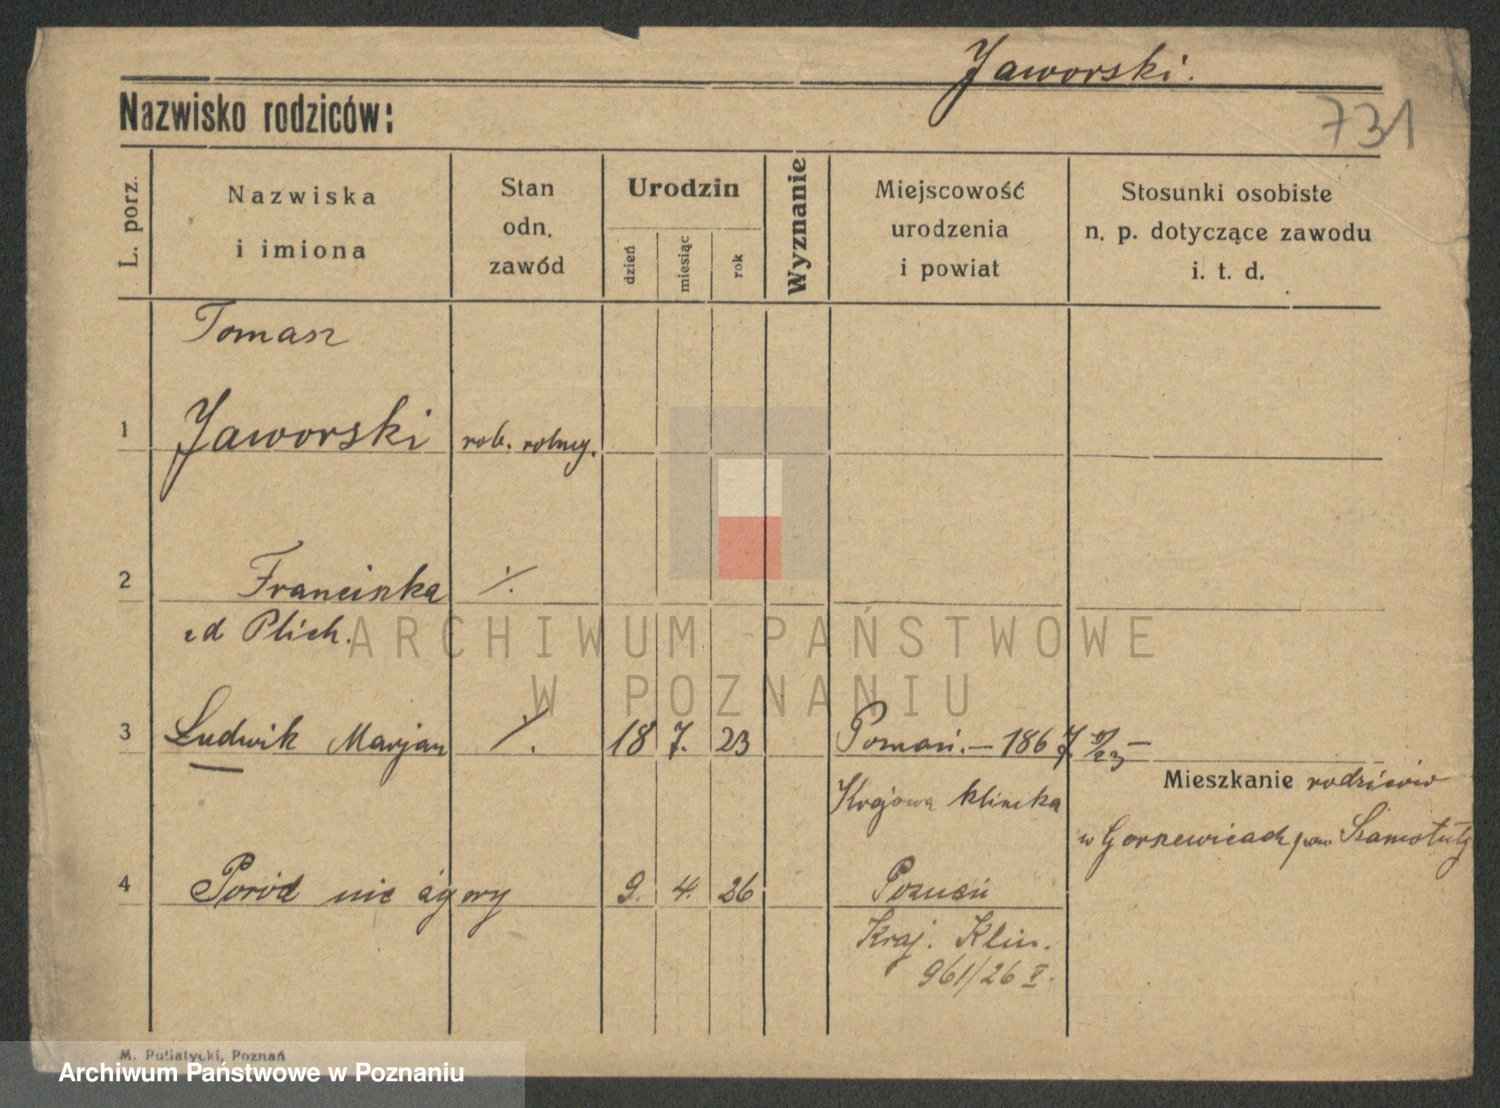 Jaworski.
Nazwisko rodziców:
731
L. porz.
Nazwiska
i imiona
Stan
odn.
zawód
Urodzin
dzień
miesiąc
rok
Wyznanie
Miejscowość
urodzenia
i powiat
Stosunki osobiste
n. p. dotyczące zawodu
i. t. d.
Tomasz
1 Jaworski rob. rolny.
2 Franciszka ./.
zd Plich.
ARCHIWUM PAŃSTWOWE
W POZNANIU
3 Ludwik Marjan ./. 18 7. 23 Poznań. — 1867
Mieszkanie rodziców
Krajowa klinika
w pow Szamotuły
4 Poród nie 9. 4. 26 Poznań
Kraj. Klin.
961/26 V.
M. Putiatycki, Poznań
Archiwum Państwowe w Poznaniu